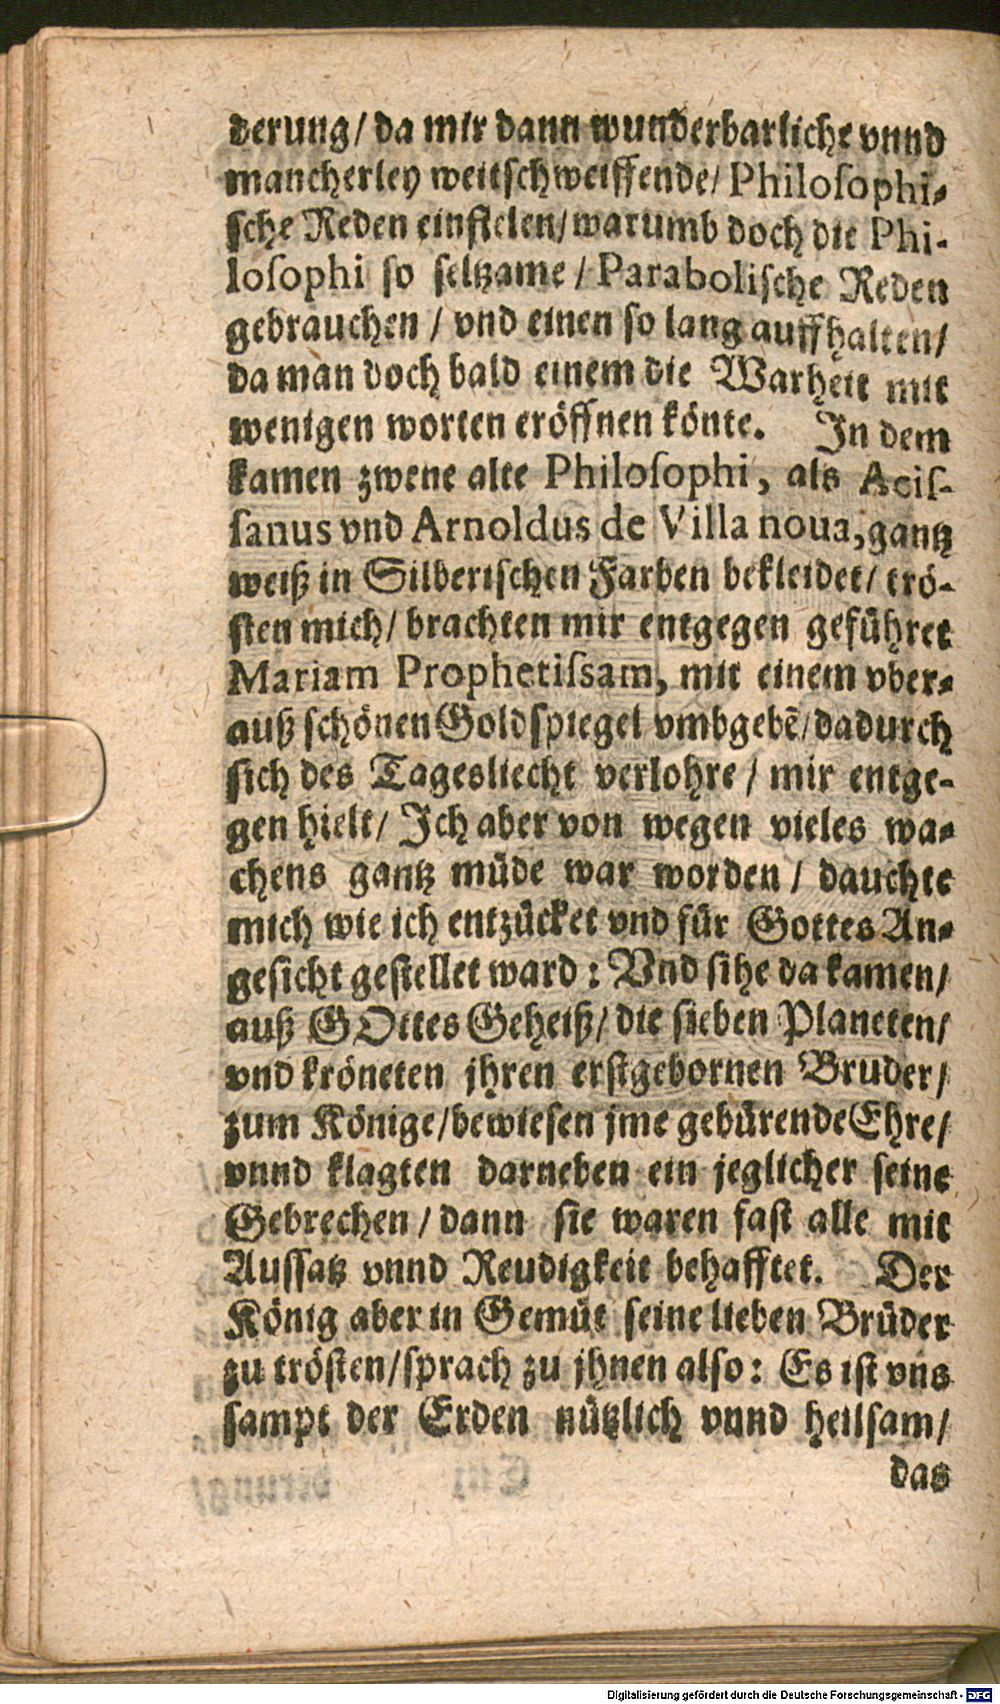 derung/ da mir dann wunderbarliche vnnd
mancherley weitschweiffende/ Philosophi-
sche Reden einfielen/ warumb doch die Phi-
losophi so seltzame / Parabolische Reden
gebrauchen / vnd einen so lang auffhalten/
da man doch bald einem die Warheit mit
wenigen worten eröffnen könte. In dem
kamen zwene alte Philosophi, als Acis-
sanus vnd Arnoldus de Villa noua, gantz
weiß in Silberischen Farben bekleidet/ trö-
sten mich/ brachten mir entgegen geführet
Mariam Prophetissam, mit einem vber-
auß schönen Goldspiegel vmbgebẽ/ dadurch
sich des Tagesliecht verlohre / mir entge-
gen hielt/ Ich aber von wegen vieles wa-
chens gantz müde war worden / dauchte
mich wie ich entzücket vnd für Gottes An-
gesicht gestellet ward : Vnd sihe da kamen/
auß GOttes Geheiß/ die sieben Planeten/
vnd kröneten jhren erstgebornen Bruder/
zum Könige/ bewiesen jme gebürende Ehre/
vnnd klagten darneben ein jeglicher seine
Gebrechen / dann sie waren fast alle mit
Aussatz vnnd Reudigkeit behafftet. Der
König aber in Gemüt seine lieben Brüder
zu trösten/ sprach zu jhnen also : Es ist vns
sampt der Erden nützlich vnnd heilsam/
das
Digitalisierung gefördert durch die Deutsche Forschungsgemeinschaft - DFG